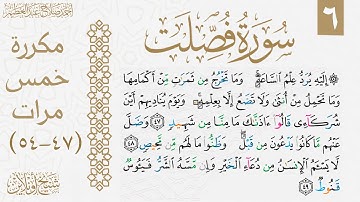 ٦
سُورَةُ فُصِّلَتْ
مكررة
خمس
مرات
(٤٧-٥٤)
۞ إِلَيْهِ يُرَدُّ عِلْمُ ٱلسَّاعَةِۚ وَمَا تَخْرُجُ مِن ثَمَرَٰتٍ مِّنْ أَكْمَامِهَا
وَمَا تَحْمِلُ مِنْ أُنثَىٰ وَلَا تَضَعُ إِلَّا بِعِلْمِهِۦۚ وَيَوْمَ يُنَادِيهِمْ أَيْنَ
شُرَكَآءِى قَالُوٓا۟ ءَاذَنَّٰكَ مَا مِنَّا مِن شَهِيدٍ ٤٧ وَضَلَّ
عَنْهُم مَّا كَانُوا۟ يَدْعُونَ مِن قَبْلُۖ وَظَنُّوا۟ مَا لَهُم مِّن مَّحِيصٍ ٤٨
لَّا يَسْـَٔمُ ٱلْإِنسَٰنُ مِن دُعَآءِ ٱلْخَيْرِ وَإِن مَّسَّهُ ٱلشَّرُّ فَيَـُٔوسٌ
قَنُوطٌ ٤٩